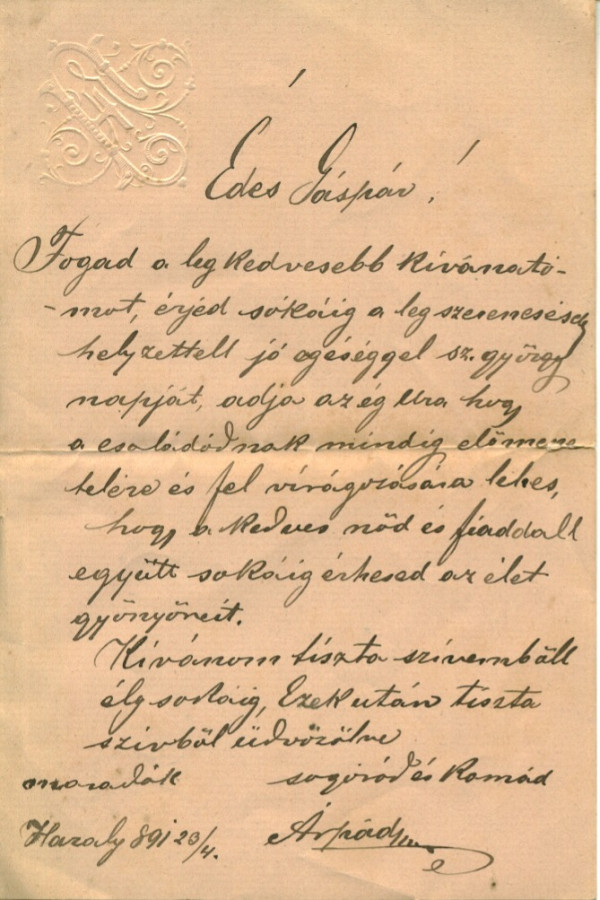 Édes Gáspár!
Fogad a legkedvesebb kívánató-
-mot, érjed sókáig a legszerencsések
helyzettell jó egéséggel sz. györgy
napját, adja az ég Ura hogy
a családódnak mindig előmene
telére és fel vírágozására lehes,
hogy a kedves nőd és fiaddall
együtt sokáig érhesed az élet
gyönyöreit.
Kívánom tiszta szívemböll
élj sokáig, Ezek után tiszta
szívböl üdvözölve
maradók sogóród és Komád
Haraly 891 23/4. Árpád